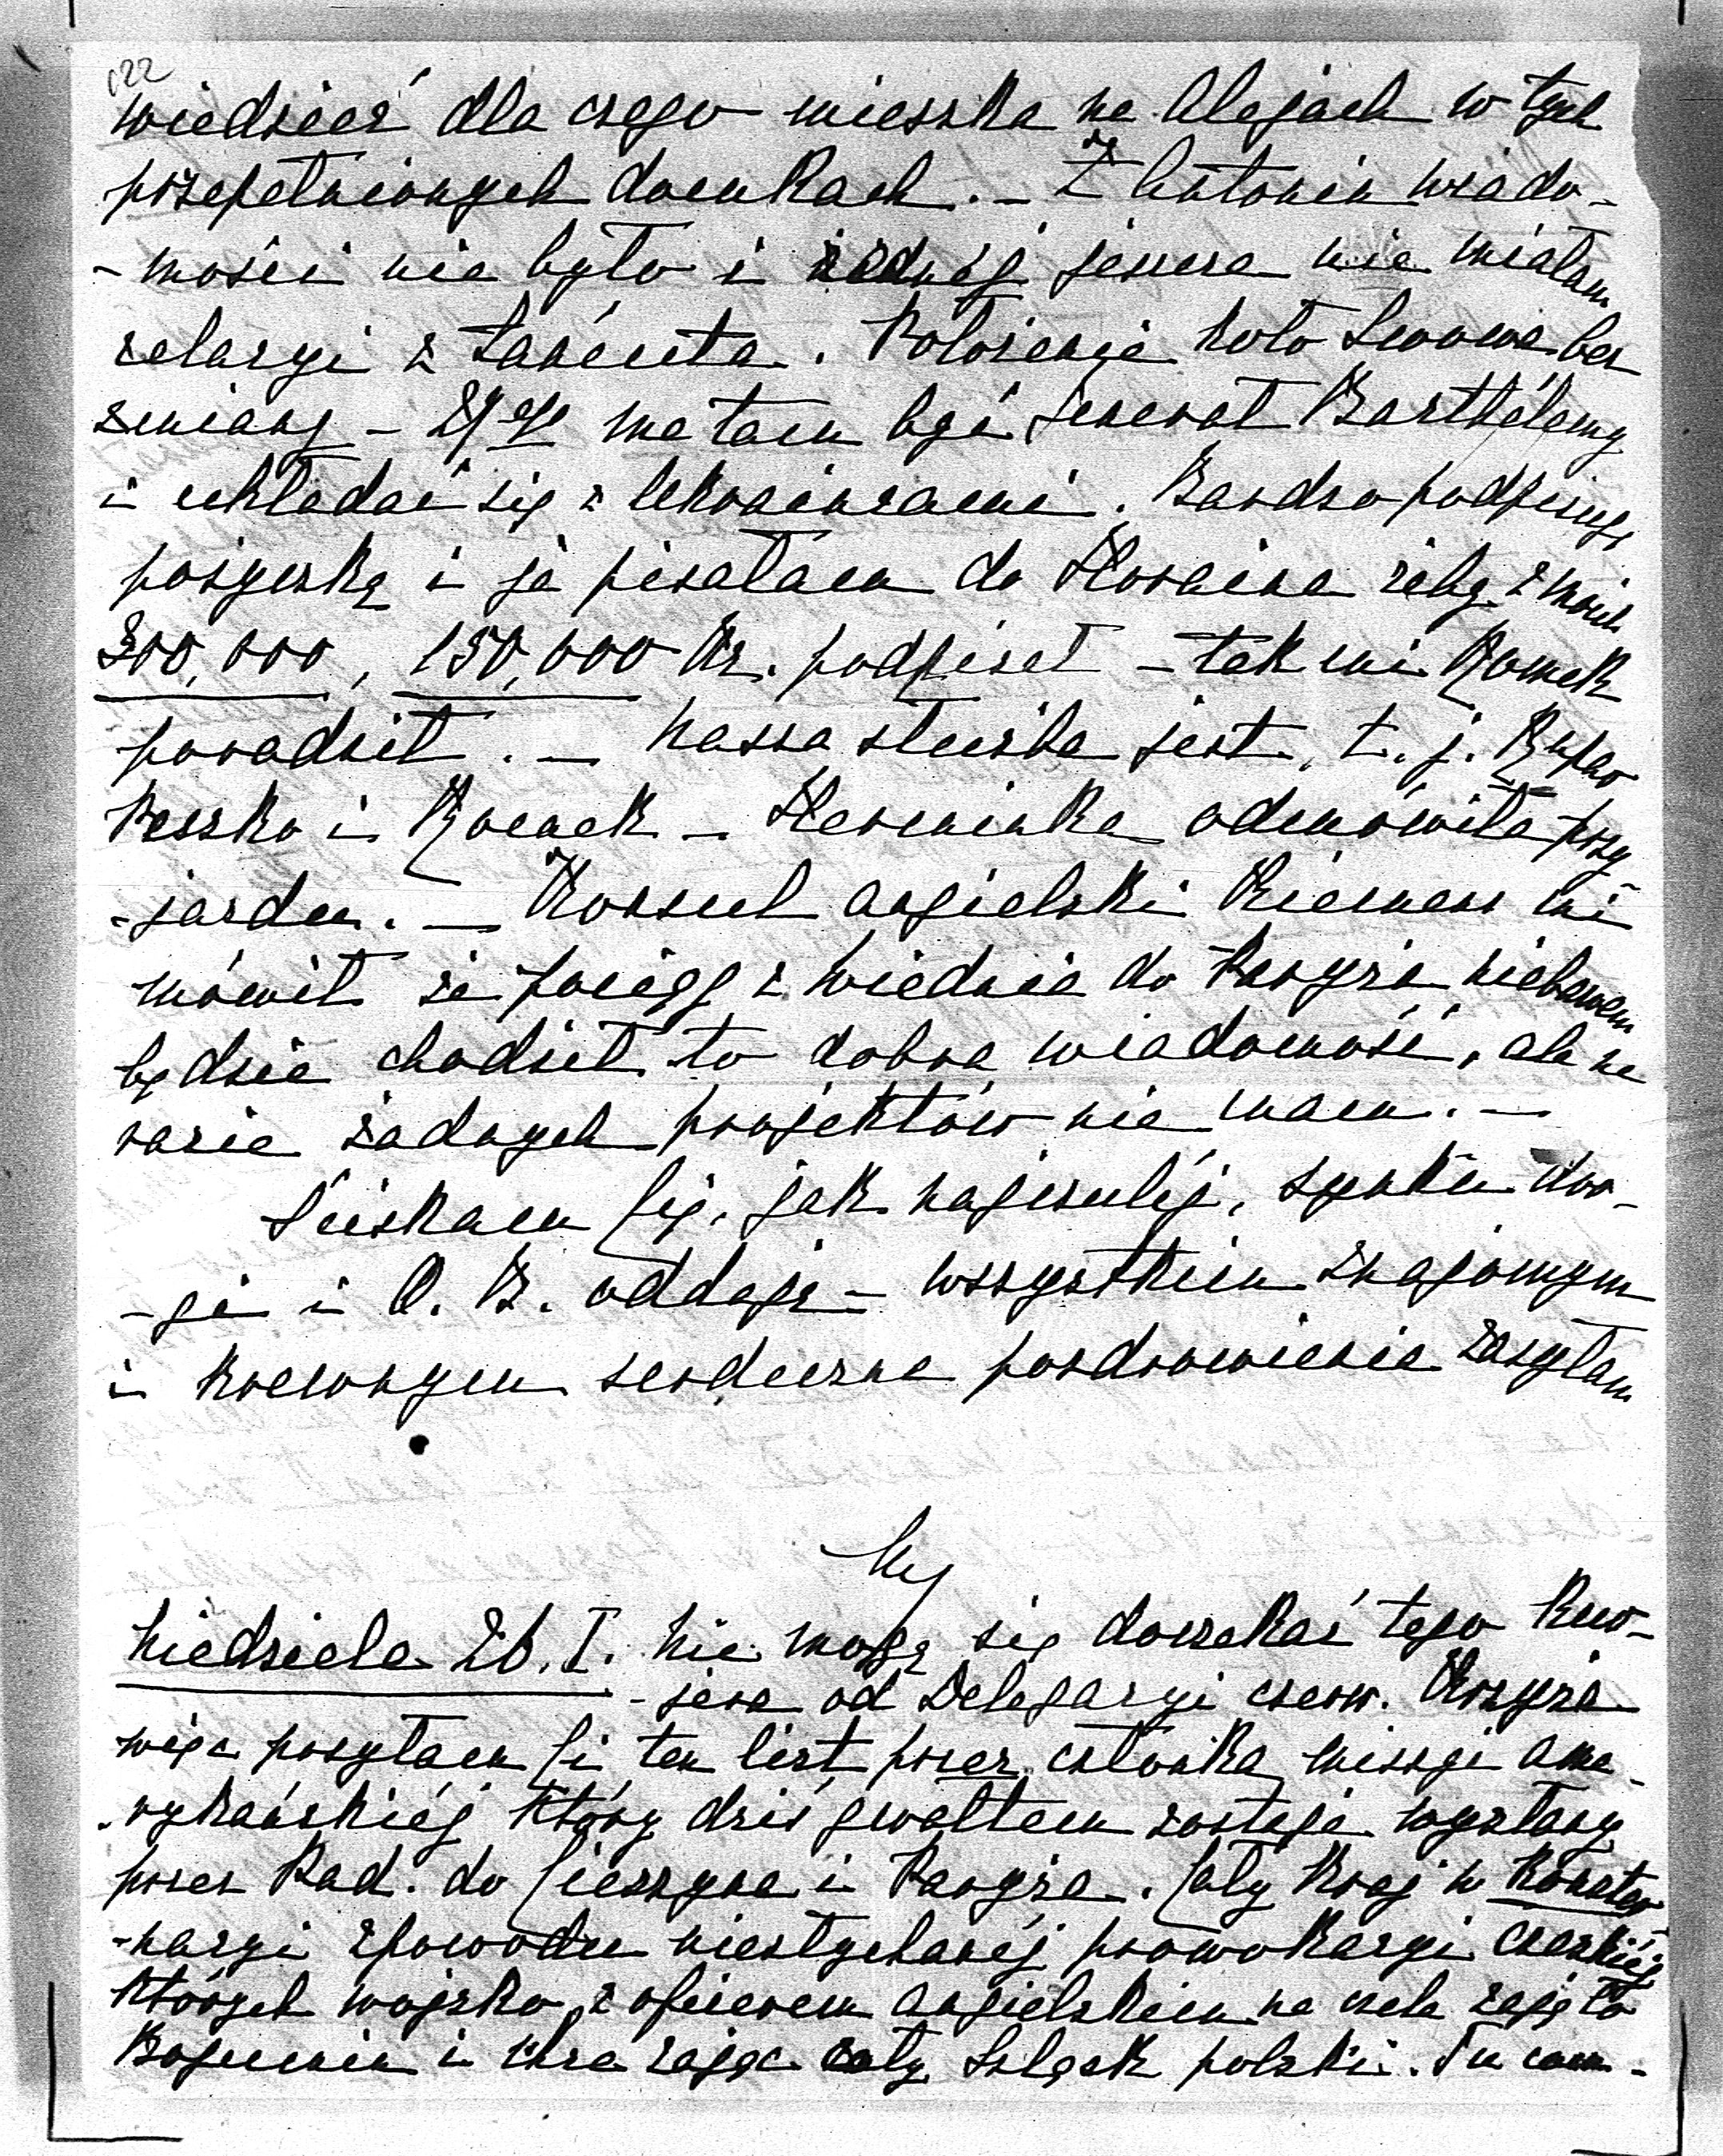 122
wiedzieć dla czego mieszka na Alejach w tych
przepełnionych domkach. — Z Antonin wiado-
-mości nie było i żadnej jeszcze nie miałam
relacyi z Łańcuta. Położenie koło Lwowa bez
zmiany — ma tam być Jenerał Barthélemy
i układać się z Ukraińcami. Bardzo podpisują
pożyczkę i ja pisałam do żeby z moich
300,000, 150,000 Kr. podpisał — tak mi Romek
poradził. — Nasza służba jest, t. j.
i Romek — odmówiła przy-
-jazdu. — Konsul angielski mi
mówił że pociąg z Wiednia do Paryża niebawem
będzie chodził to dobra wiadomość, ale na
razie żadnych projektów nie mam. —
Ściskam Cię, jak najczulej, synku dro-
-gi i O. B. oddaję — wszystkim znajomym
i krewnym serdeczne pozdrowienia zasyłam
My
Niedziela 26. I. Nie mogę się doczekać tego kur-
-jera od Delegacyi czerw. Krzyża
więc posyłam Ci ten list przez członka missyi ame-
-rykańskiéj który dziś gwałtem zostaje wysłany
przez Pad. do Cieszyna i Paryża. Cały kraj w konster-
-nacyi z powodu niesłychanéj prowokacyi czeskiéj
których wojsko z oficerem angielskim na czele zajęło
Bogumin i chce zająć cały Szląsk polski. Tu